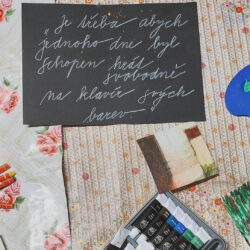 „Je třeba abych
jednoho dne byl
schopen hrát
svobodně
na klavír svých
barev –“